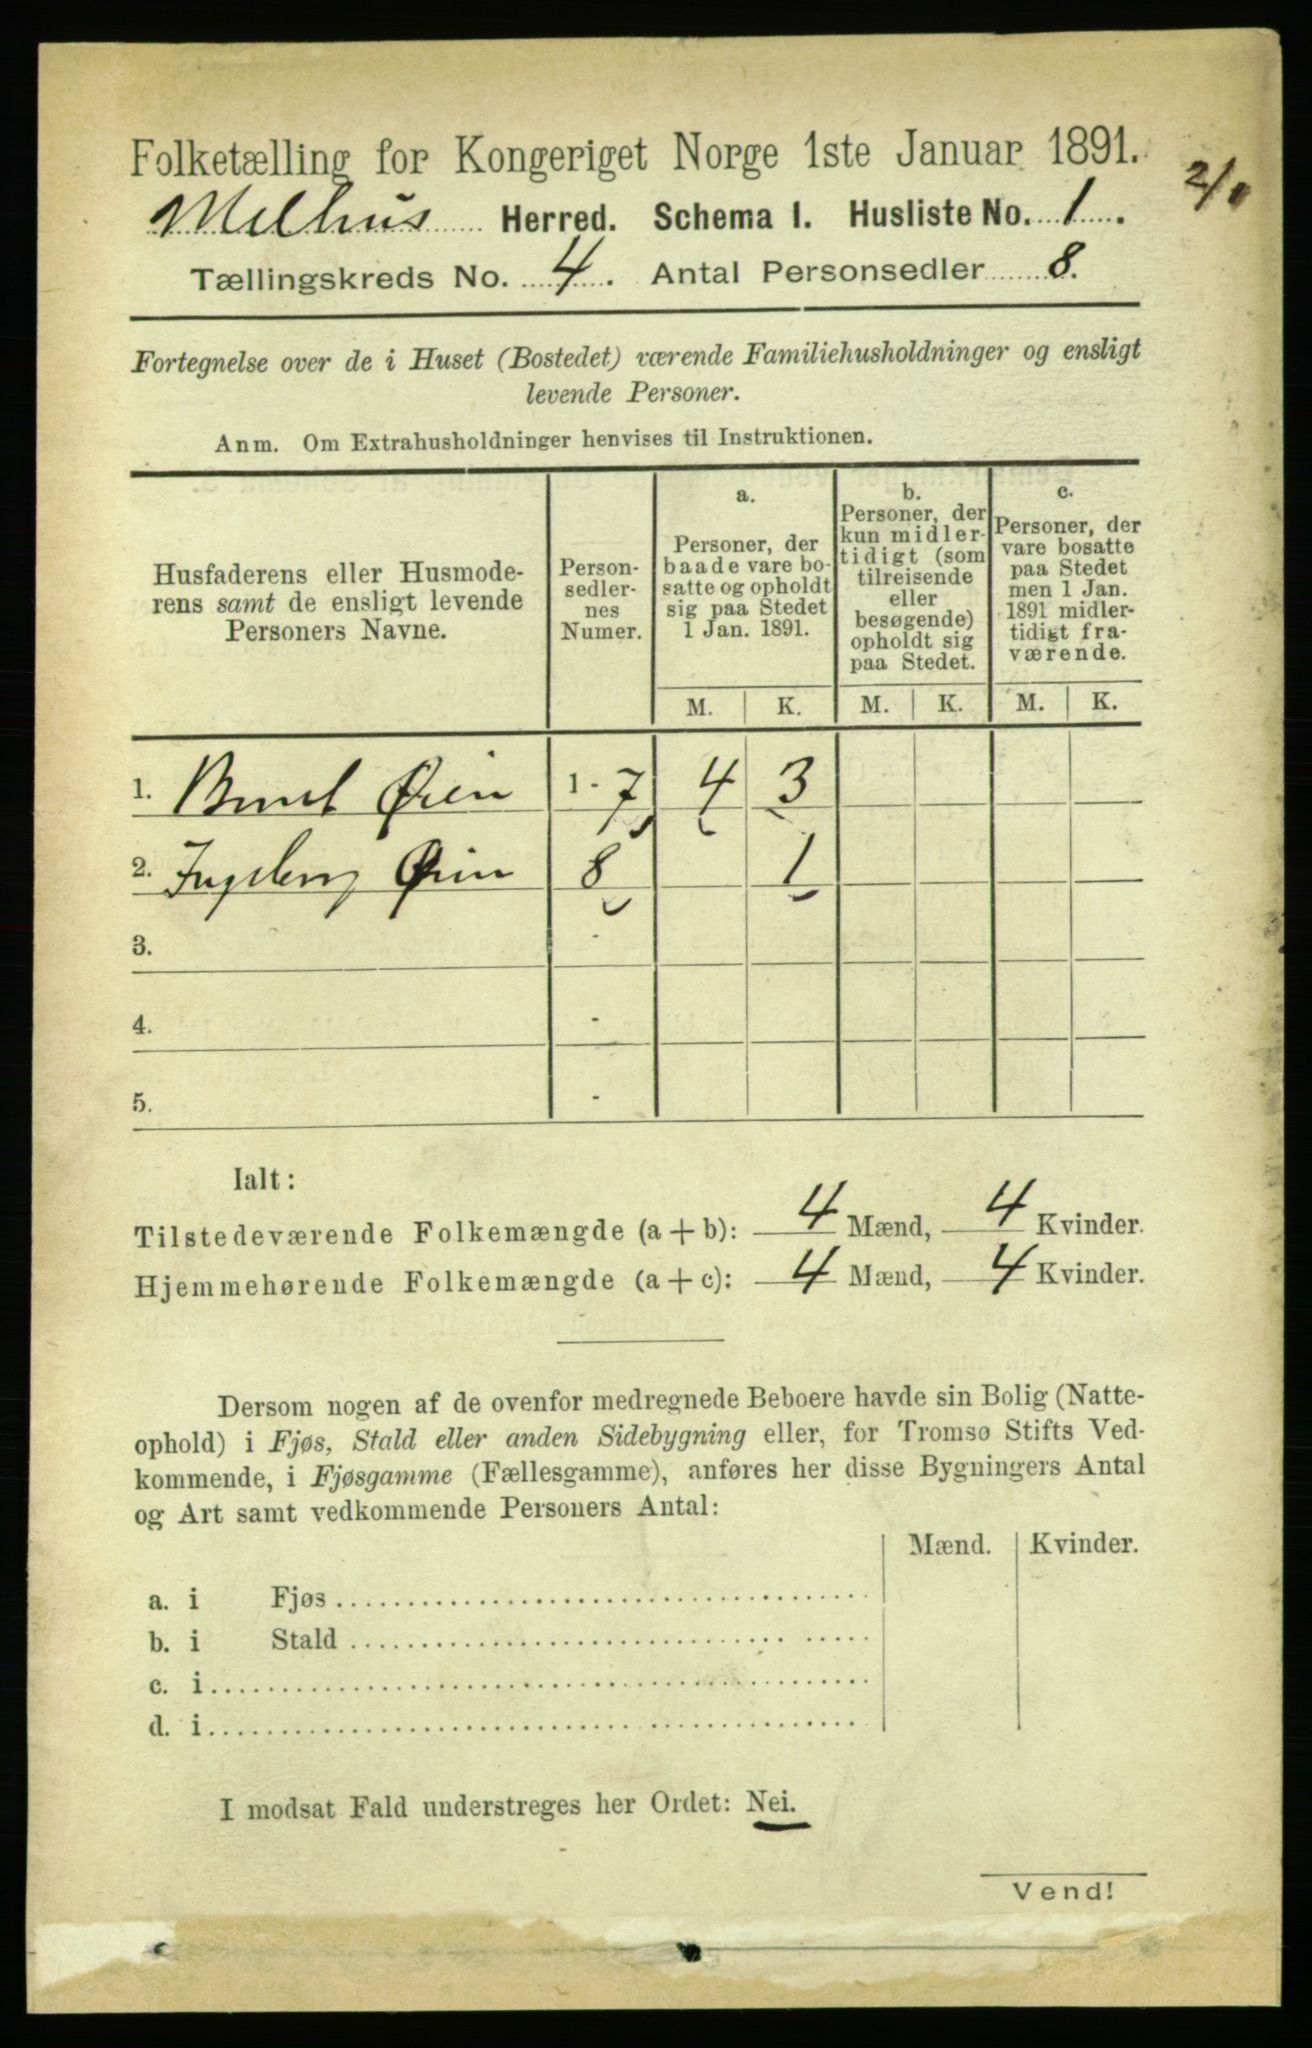 Folketælling for Kongeriget Norge 1ste Januar 1891.
2/1
Melhus Herred. Schema 1. Husliste No. 1.
Tællingskreds No. 4. Antal Personsedler 8.
Fortegnelse over de i Huset (Bostedet) værende Familiehusholdninger og ensligt
levende Personer.
Anm. Om Extrahusholdninger henvises til Instruktionen.
Husfaderens eller Husmode-
rens samt de ensligt levende
Personers Navne.
Person-
sedler-
nes
Numer.
a.
Personer, der
baade vare bo-
satte og opholdt
sig paa Stedet
1 Jan. 1891.
b.
Personer, der
kun midler-
tidigt (som
tilreisende
eller
besøgende)
opholdt sig
paa Stedet.
c.
Personer, der
vare bosatte
paa Stedet
men 1 Jan.
1891 midler-
tidigt fra-
værende.
M. K. M. K. M. K.
1. Bernt Øien 1 - 7 4 3
2. Ingeborg Øien 8 1
3. -
4. -
5. -
Ialt:
Tilstedeværende Folkemængde (a + b): 4 Mænd, 4 Kvinder.
Hjemmehørende Folkemængde (a + c): 4 Mænd, 4 Kvinder.
Dersom nogen af de ovenfor medregnede Beboere havde sin Bolig (Natte-
ophold) i Fjøs, Stald eller anden Sidebygning eller, for Tromsø Stifts Ved-
kommende, i Fjøsgamme (Fællesgamme), anføres her disse Bygningers Antal
og Art samt vedkommende Personers Antal:
Mænd. Kvinder.
a. i Fjøs
b. i Stald
c. i
d. i
I modsat Fald understreges her Ordet: Nei.
Vend!